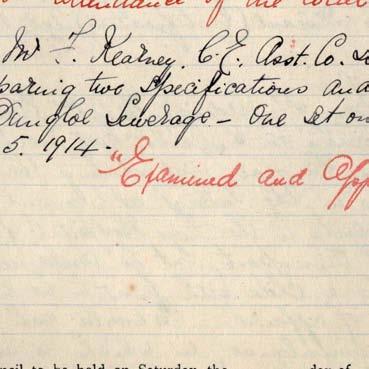 attendance of the
Mr F. Kearney, C.E., Asst. Co. S
paring two Specifications and
Dungloe Sewerage – One set on
5. 1914 –
"Examined and App
ncil to be held on Saturday, the day of